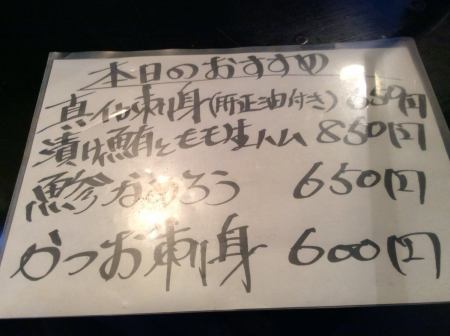 本日のおすすめ
真イカ刺身(肝正油付き) 850円
漬け鮪とモモ生ハム 850円
鯵なめろう 650円
かつお刺身 600円